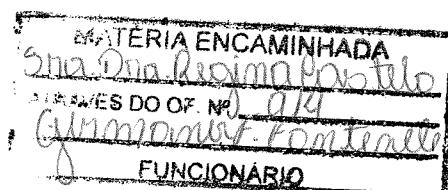 MATÉRIA ENCAMINHADA
Sra. Dra. Regina Castelo
ATRAVÉS DO OF. Nº 94
Fontenelle
FUNCIONÁRIO